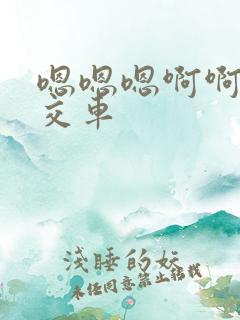 嗯嗯嗯啊啊
交车
浅睡的妖
未经同意禁止转载